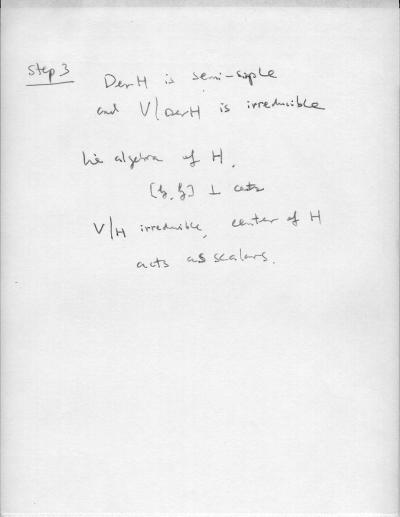 Step 3
Der H is semi-simple
and V|Der H is irreducible
Lie algebra of H.
[h, h] ⊥ cent
V|H irreducible, center of H
acts as scalars.